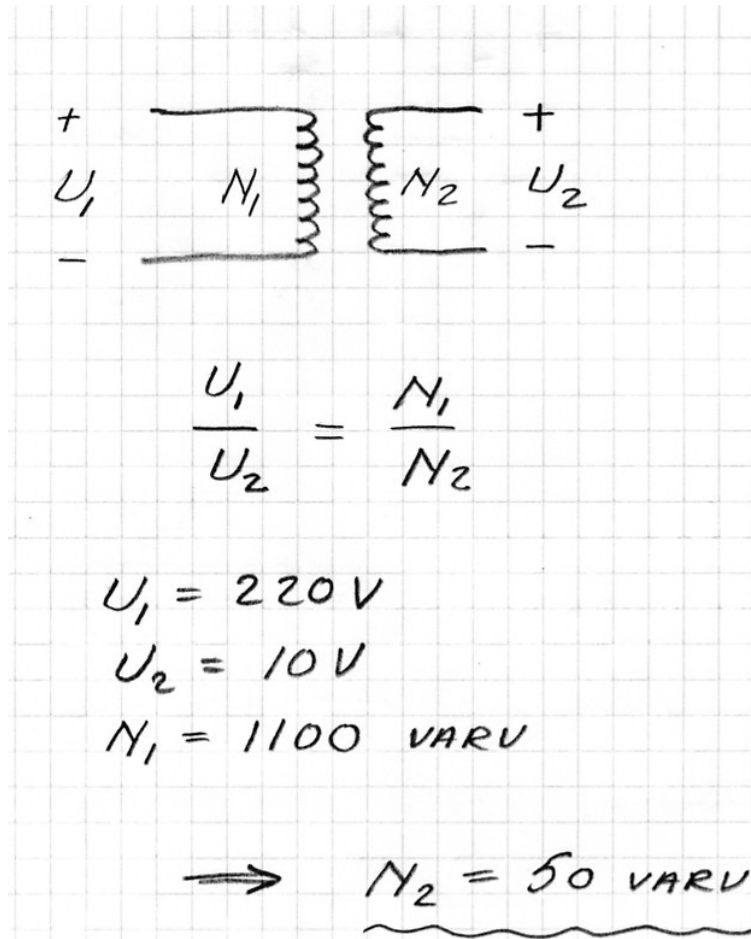 + +
U₁ N₁ N₂ U₂
− −
U₁ = N₁
U₂ N₂
U₁ = 220 V
U₂ = 10 V
N₁ = 1100 VARV
⇒ N₂ = 50 VARV